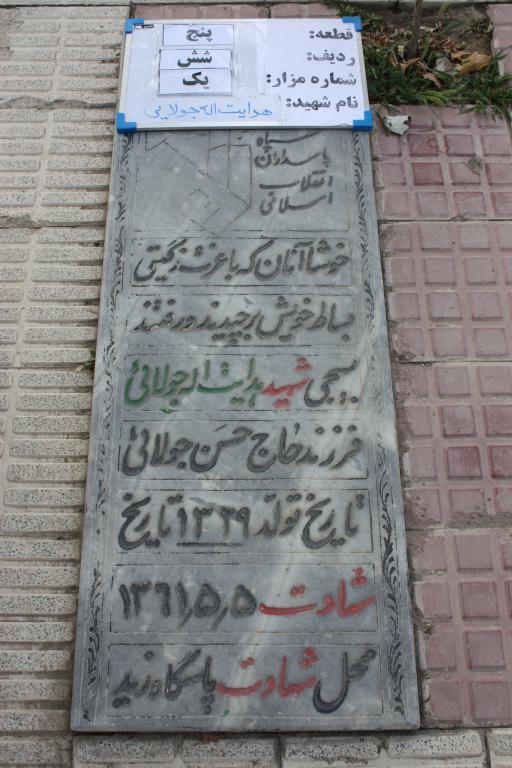 قطعه: پنج
ردیف: شش
شماره مزار: یک
نام شهید: هدایت اله جولایی
سپاه
پاسداران
انقلاب
اسلامی
خوشا آنان که با عزت ز گیتی
بساط خویش برچیدند و رفتند
بسیجی شهید هدایت اله جولائی
فرزند حاج حسن جولائی
تاریخ تولد ۱۳۳۹ تاریخ
شهادت ۱۳۶۱٫۵٫۵
محل شهادت پاسگاه زید